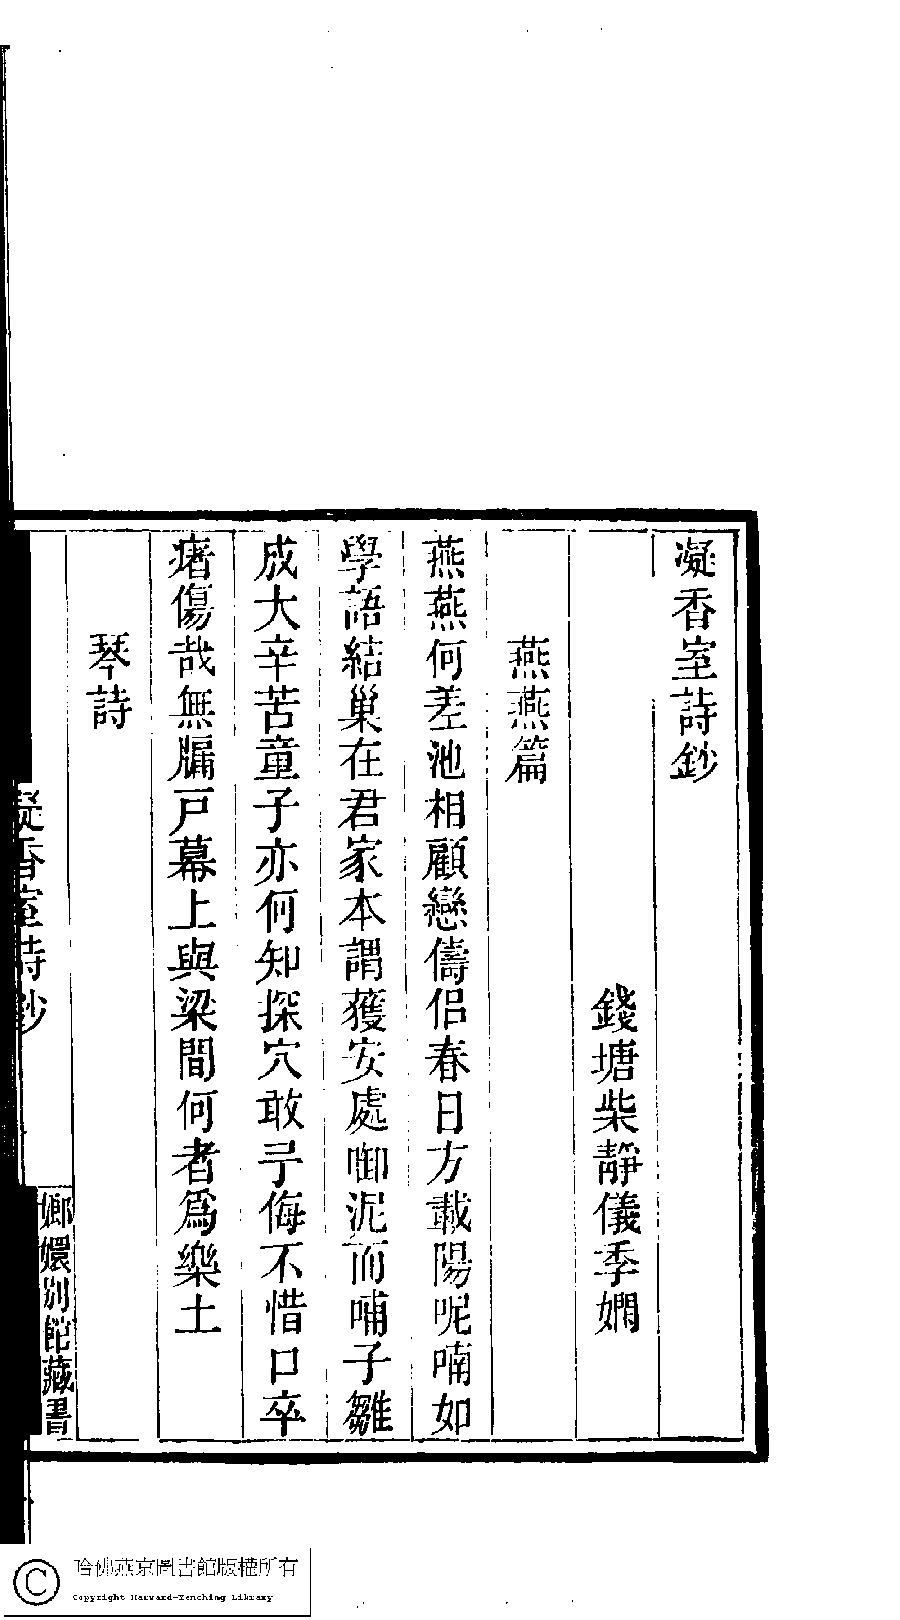 凝香室詩鈔
錢塘柴靜儀季嫻
燕燕篇
燕燕何差池相顧戀儔侶春日方載陽呢喃如
學語結巢在君家本謂獲安處啣泥而哺子雛
成大辛苦童子亦何知探穴敢予侮不惜口卒
瘏傷哉無牖戸幕上與梁間何者爲樂土
琴詩
凝香室詩鈔
嫏嬛別館藏書
哈佛燕京圖書館版權所有
Copyright Harvard-Yenching Library